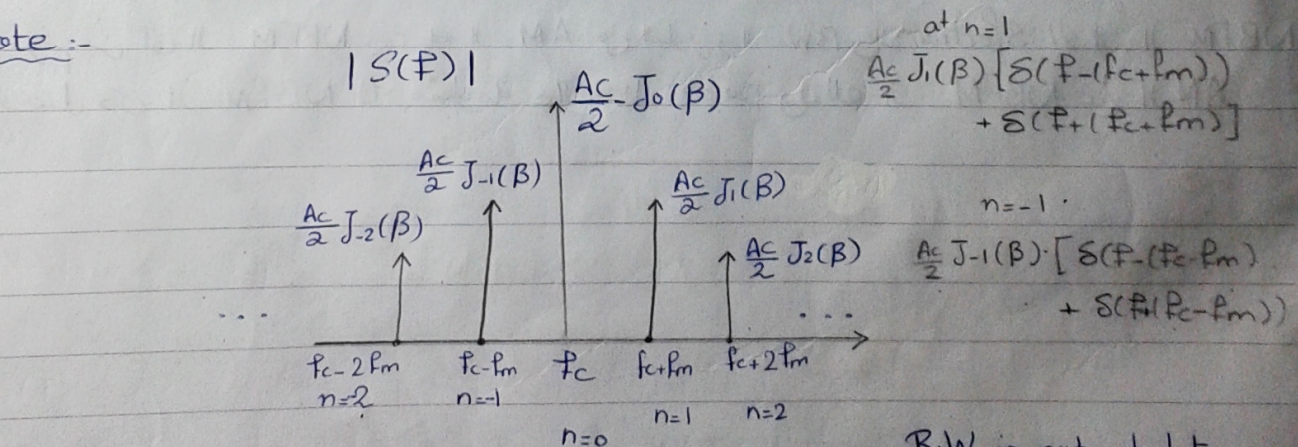 ote :-
|S(f)|
Ac/2 J₀(β)
Ac/2 J₋₁(β)
Ac/2 J₁(β)
Ac/2 J₋₂(β)
Ac/2 J₂(β)
...
...
fc-2fm fc-fm fc fc+fm fc+2fm
n=-2 n=-1 n=0 n=1 n=2
at n=1
Ac/2 J₁(β) [δ(f-(fc+fm))
+ δ(f+(fc+fm)]
n=-1 .
Ac/2 J₋₁(β)·[δ(f-(fc-fm)
+ δ(f+(fc-fm))
B.W